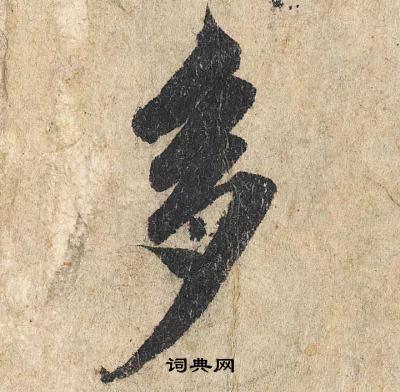 多
词典网